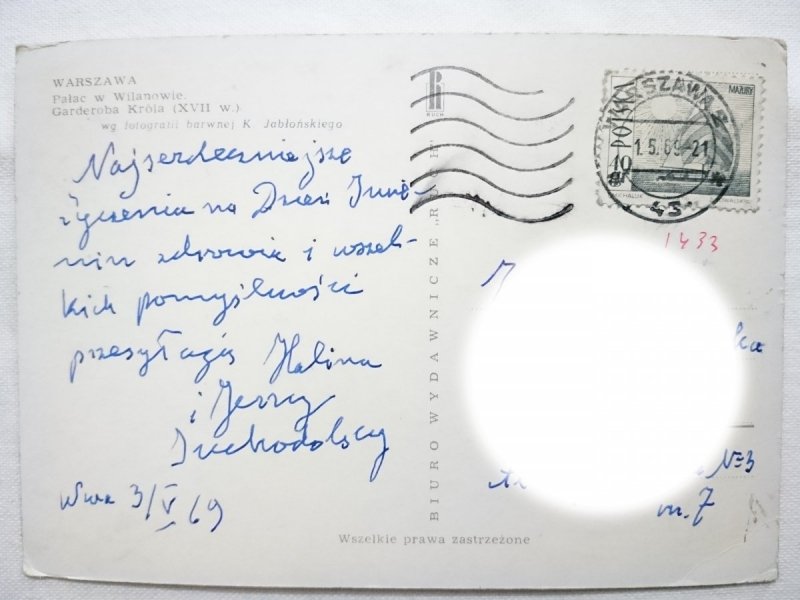 WARSZAWA
Pałac w Wilanowie.
Garderoba Króla (XVII w.)
wg fotografii barwnej K. Jabłońskiego
Najserdeczniejsze
życzenia na Dzień Imie-
nin zdrowia i wszel-
kich pomyślności
przesyłają Halina
i Jerzy
Suchodolscy
W-wa 3/V 69
BIURO WYDAWNICZE „RUCH"
RUCH
WARSZAWA 2
1.5.69-21
45
POLSKA
MAZURY
40
gr
1433
ka
№3
m. 7
Wszelkie prawa zastrzeżone